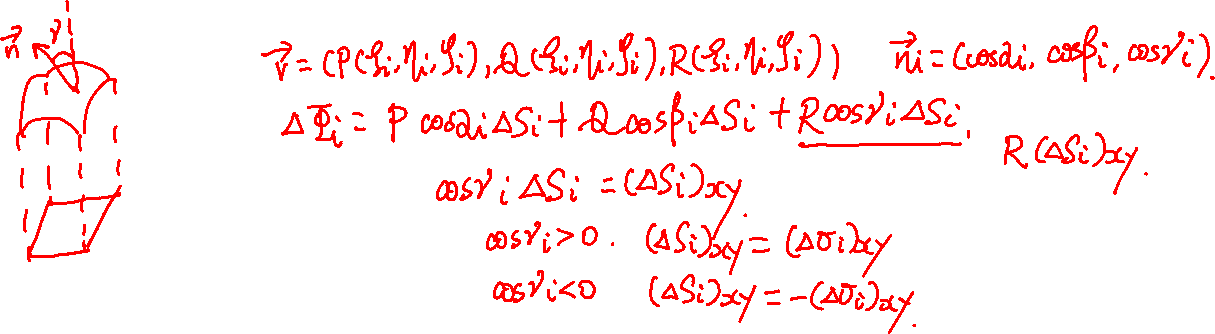 n⃗ γ
v⃗ = (P(ξi,ηi,ζi), Q(ξi,ηi,ζi), R(ξi,ηi,ζi)) n⃗i = (cosαi, cosβi, cosγi).
ΔΦi = P cosαiΔSi + Q cosβiΔSi + Rcosγi ΔSi.
R(ΔSi)xy.
cosγi ΔSi = (ΔSi)xy.
cosγi>0. (ΔSi)xy = (Δσi)xy
cosγi<0 (ΔSi)xy = -(Δσi)xy.